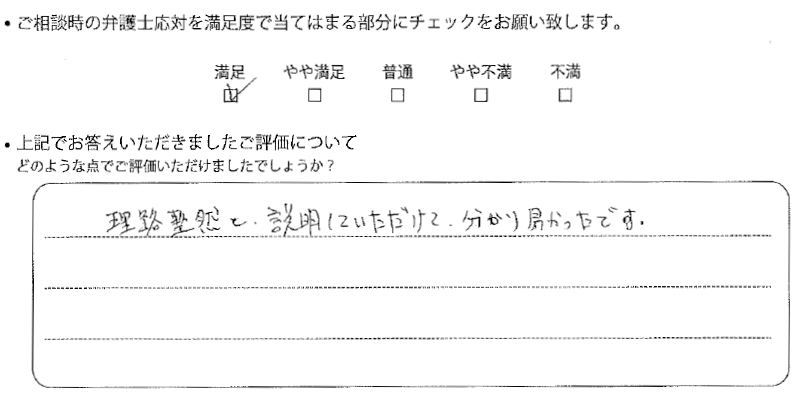 ・ご相談時の弁護士応対を満足度で当てはまる部分にチェックをお願い致します。
満足 やや満足 普通 やや不満 不満
☑ □ □ □ □
・上記でお答えいただきましたご評価について
どのような点でご評価いただけましたでしょうか？
理路塾然と、説明していただけて、分かり易かったです。